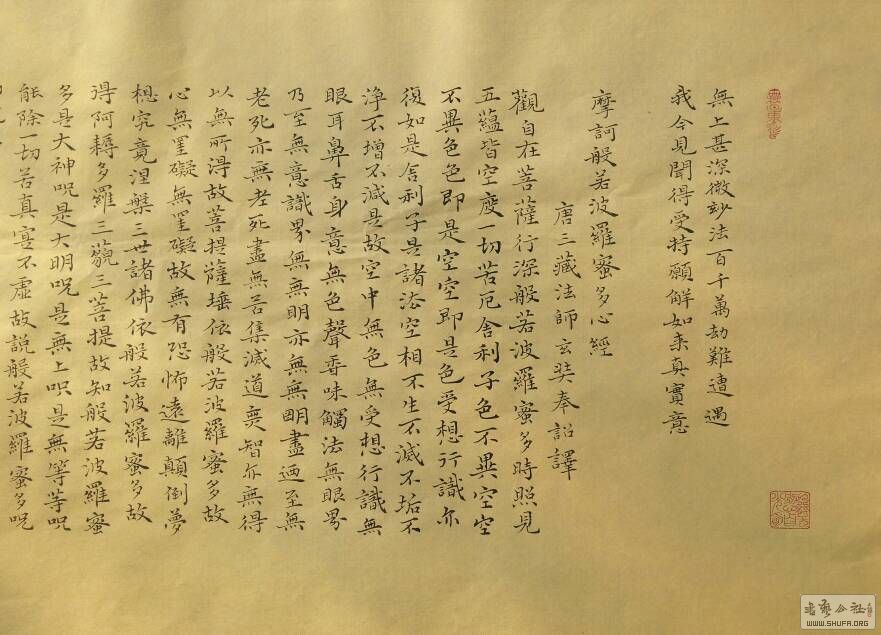 無上甚深微妙法百千萬劫難遭遇
我今見聞得受持願解如来真實意
摩訶般若波羅蜜多心經
唐三藏法師玄奘奉詔譯
觀自在菩薩行深般若波羅蜜多時照見
五蘊皆空度一切苦厄舍利子色不異空空
不異色色即是空空即是色受想行識亦
復如是舍利子是諸法空相不生不滅不垢不
淨不增不減是故空中無色無受想行識無
眼耳鼻舌身意無色聲香味觸法無眼界
乃至無意識界無無明亦無無明盡迺至無
老死亦無老死盡無苦集滅道無智亦無得
以無所得故菩提薩埵依般若波羅蜜多故
心無罣礙無罣礙故無有恐怖遠離顛倒夢
想究竟涅槃三世諸佛依般若波羅蜜多故
得阿耨多羅三藐三菩提故知般若波羅蜜
多是大神呪是大明呪是無上呪是無等等呪
能除一切苦真實不虛故説般若波羅蜜多呪
WWW.SHUFA.ORG